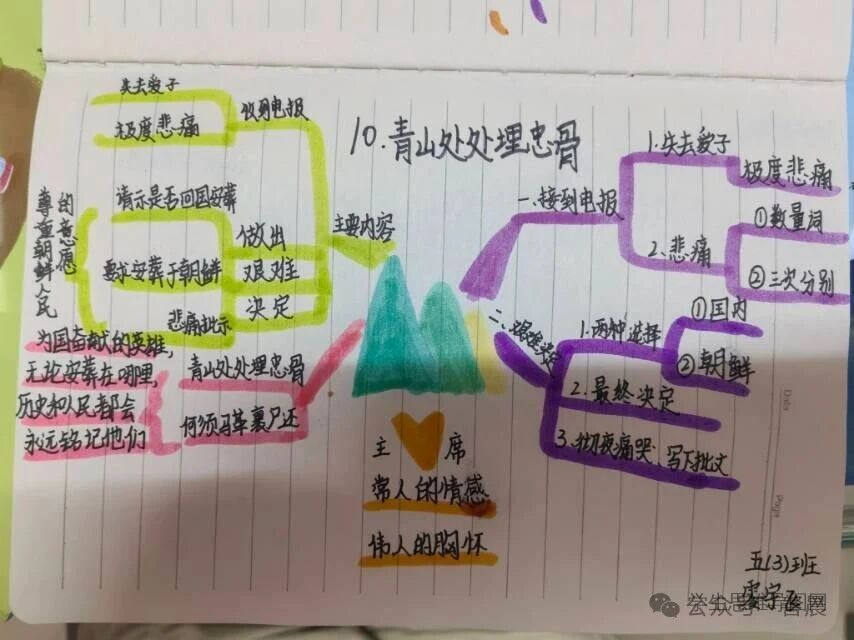 10.青山处处埋忠骨
主要内容
收到电报
失去爱子
极度悲痛
做出
艰难
决定
请示是否回国安葬
要求安葬于朝鲜
悲痛批示
尊重朝鲜人民
的意愿
青山处处埋忠骨
何须马革裹尸还
为国奋献的英雄,
无论安葬在哪里,
历史和人民都会
永远铭记他们
一、接到电报
1.失去爱子
极度悲痛
2.悲痛
①数量词
②三次分别
二、艰难抉择
1.两种选择
①国内
②朝鲜
2.最终决定
3.彻夜痛哭、写下批文
主席
常人的情感
伟人的胸怀
Date
Page
五(3)班